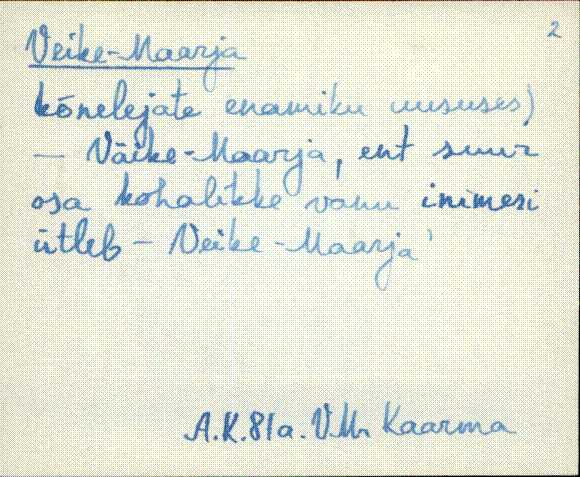 2
Veike-Maarja
kõnelejate enamiku uususes)
— Väike-Maarja, ent suur
osa kohalikke vanu inimesi
ütleb - Veike-Maarja'
A.K.81a. V.M. Kaarma